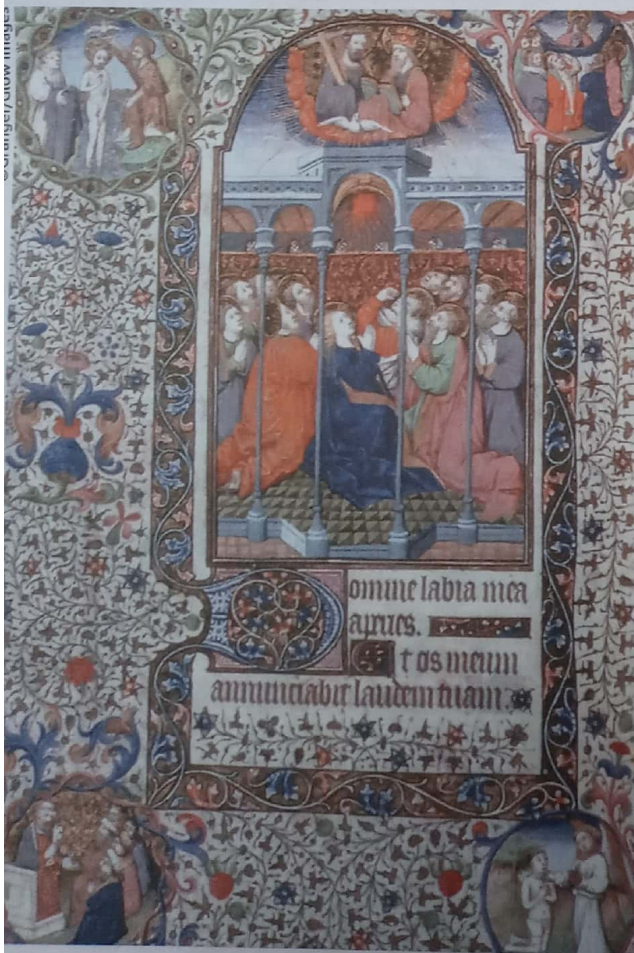 ©Granger/Glow Images
Domine labia mea
aperies.
Et os meum
annunciabit laudem tuam.